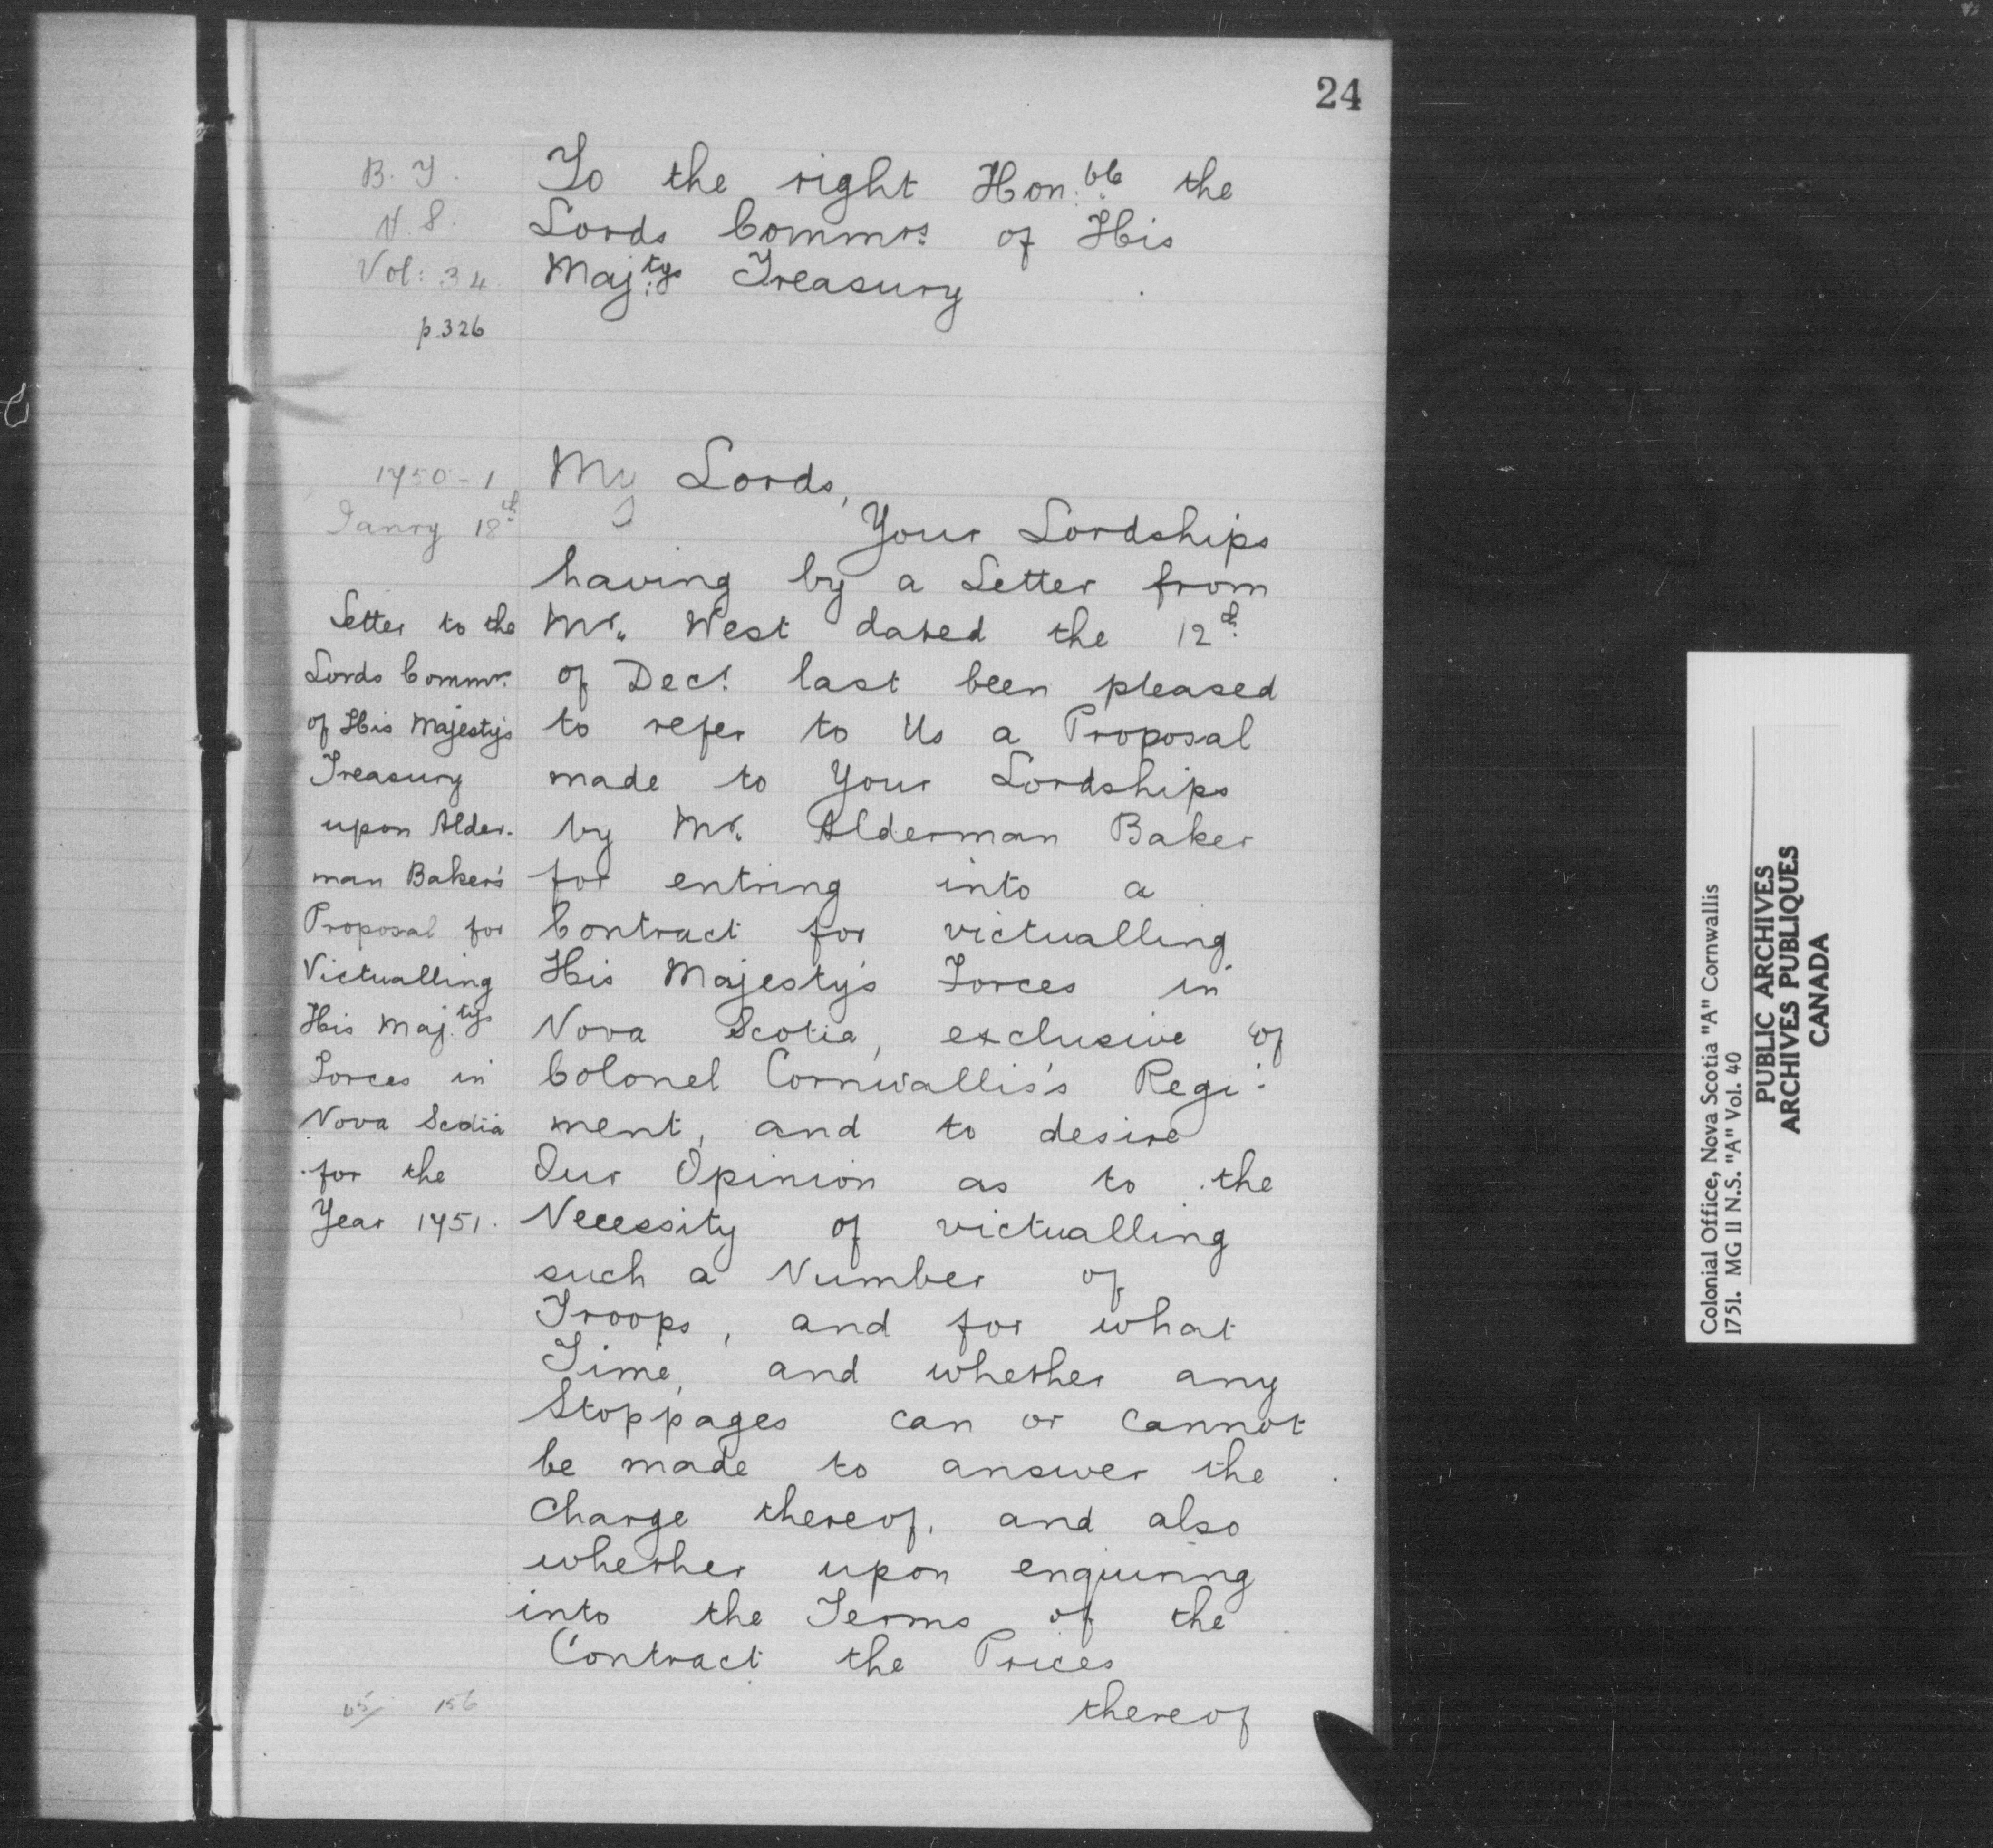 24
B. T.
N. S.
Vol: 34.
p. 326
To the right Hon:ble the
Lords Commrs. of His
Maj:tys Treasury
1750-1
Janry 18th
Letter to the
Lords Commrs.
of His Majesty's
Treasury
upon Alder-
man Baker's
Proposal for
Victualling
His Maj:tys
Forces in
Nova Scotia
for the
Year 1751.
My Lords,
Your Lordships
having by a Letter from
Mr. West dated the 12th
of Decr. last been pleased
to refer to Us a Proposal
made to Your Lordships
by Mr. Alderman Baker
for entring into a
Contract for victualling
His Majesty's Forces in
Nova Scotia, exclusive of
Colonel Cornwallis's Regi-
ment, and to desire
Our Opinion as to the
Necessity of victualling
such a Number of
Troops, and for what
Time, and whether any
Stoppages can or cannot
be made to answer the
Charge thereof, and also
whether upon enquiring
into the Terms of the
Contract the Prices
thereof
156
Colonial Office, Nova Scotia "A" Cornwallis
1751. MG 11 N.S. "A" Vol. 40
PUBLIC ARCHIVES
ARCHIVES PUBLIQUES
CANADA